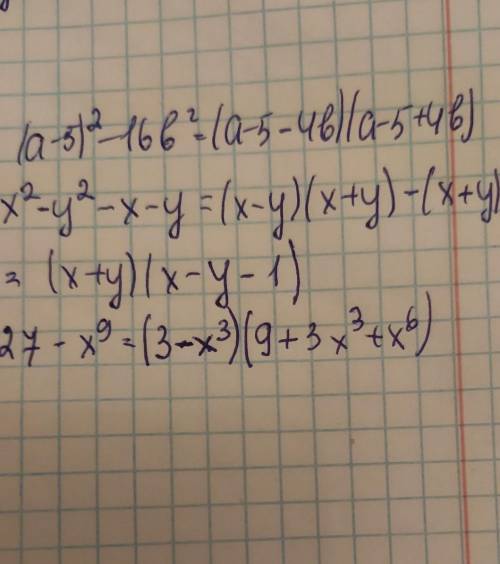 (a-5)² - 16b² = (a-5-4b)(a-5+4b)
x²-y²-x-y = (x-y)(x+y)-(x+y)
= (x+y)(x-y-1)
27 - x⁹ = (3-x³)(9+3x³+x⁶)